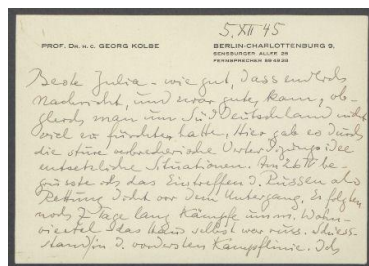 5. XII 45
PROF. DR. H. C. GEORG KOLBE
BERLIN-CHARLOTTENBURG 9,
SENSBURGER ALLEE 25
FERNSPRECHER
Beste Julia – wie gut, dass endlich
Nachricht, und zwar gute, kam, ob-
gleich man um Süddeutschland nicht
viel zu fürchten hatte. Hier gab es durch
die sture verbrecherische Verteidigungsidee
entsetzliche Situationen. Am 26 IV be-
grüsste ich das Eintreffen d. Russen als
Rettung dicht vor dem Untergang. Es folgten
noch 7 Tage lang Kämpfe um m. Wohn-
viertel u das Haus selbst war russ. Schiess-
stand in d. vordersten Kampflinie. Ich